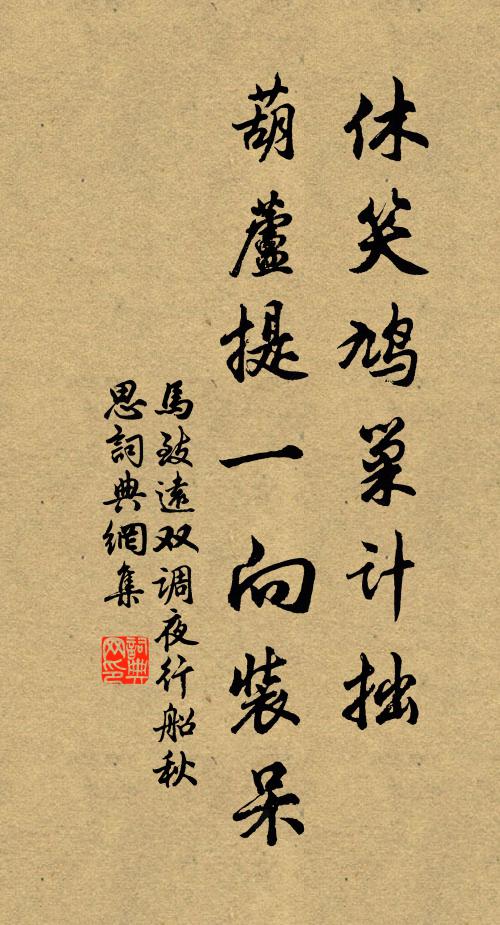 休笑鸠巢计拙
葫蘆提一向裝呆
馬致遠双调夜行船秋
思詞典網集
詞典网印